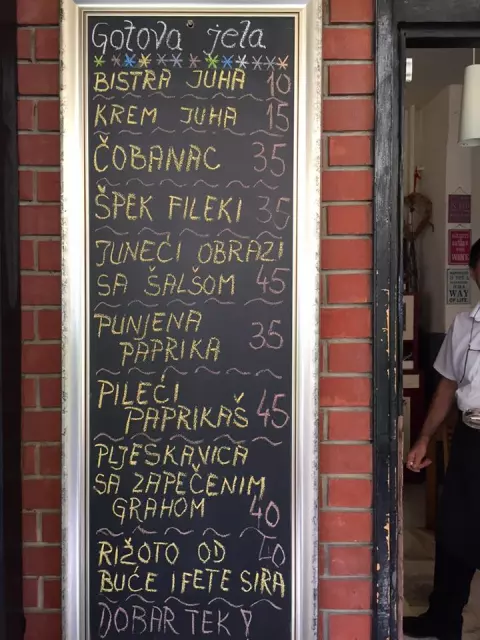 Gotova jela
BISTRA JUHA 10
KREM JUHA 15
ČOBANAC 35
ŠPEK FILEKI 35
JUNEĆI OBRAZI
SA ŠALŠOM 45
PUNJENA
PAPRIKA 35
PILEĆI
PAPRIKAŠ 45
PLJESKAVICA
SA ZAPEČENIM
GRAHOM 40
RIŽOTO OD 40
BUĆE I FETE SIRA
DOBAR TEK!
WAY
OF LIFE